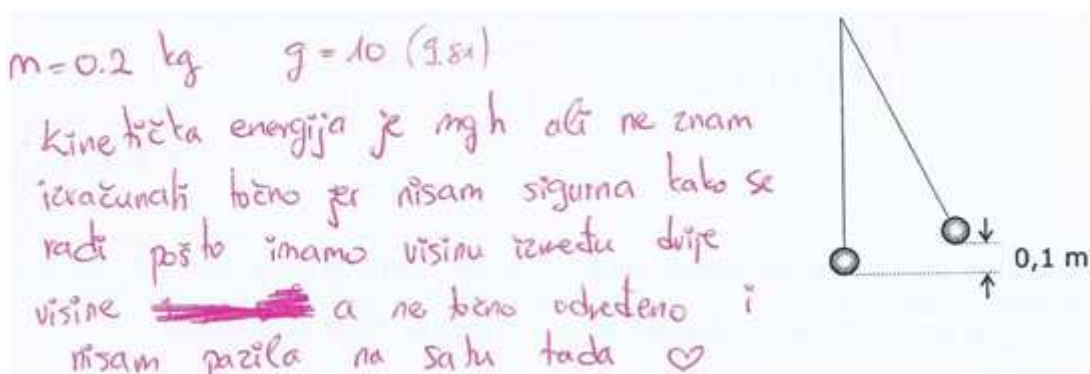 m=0.2 kg g=10 (9.81)
Kinetička energija je mgh ali ne znam
izračunati točno jer nisam sigurna kako se
radi pošto imamo visinu između dvije
visine a ne točno određeno i
nisam pazila na satu tada ♡
0,1 m